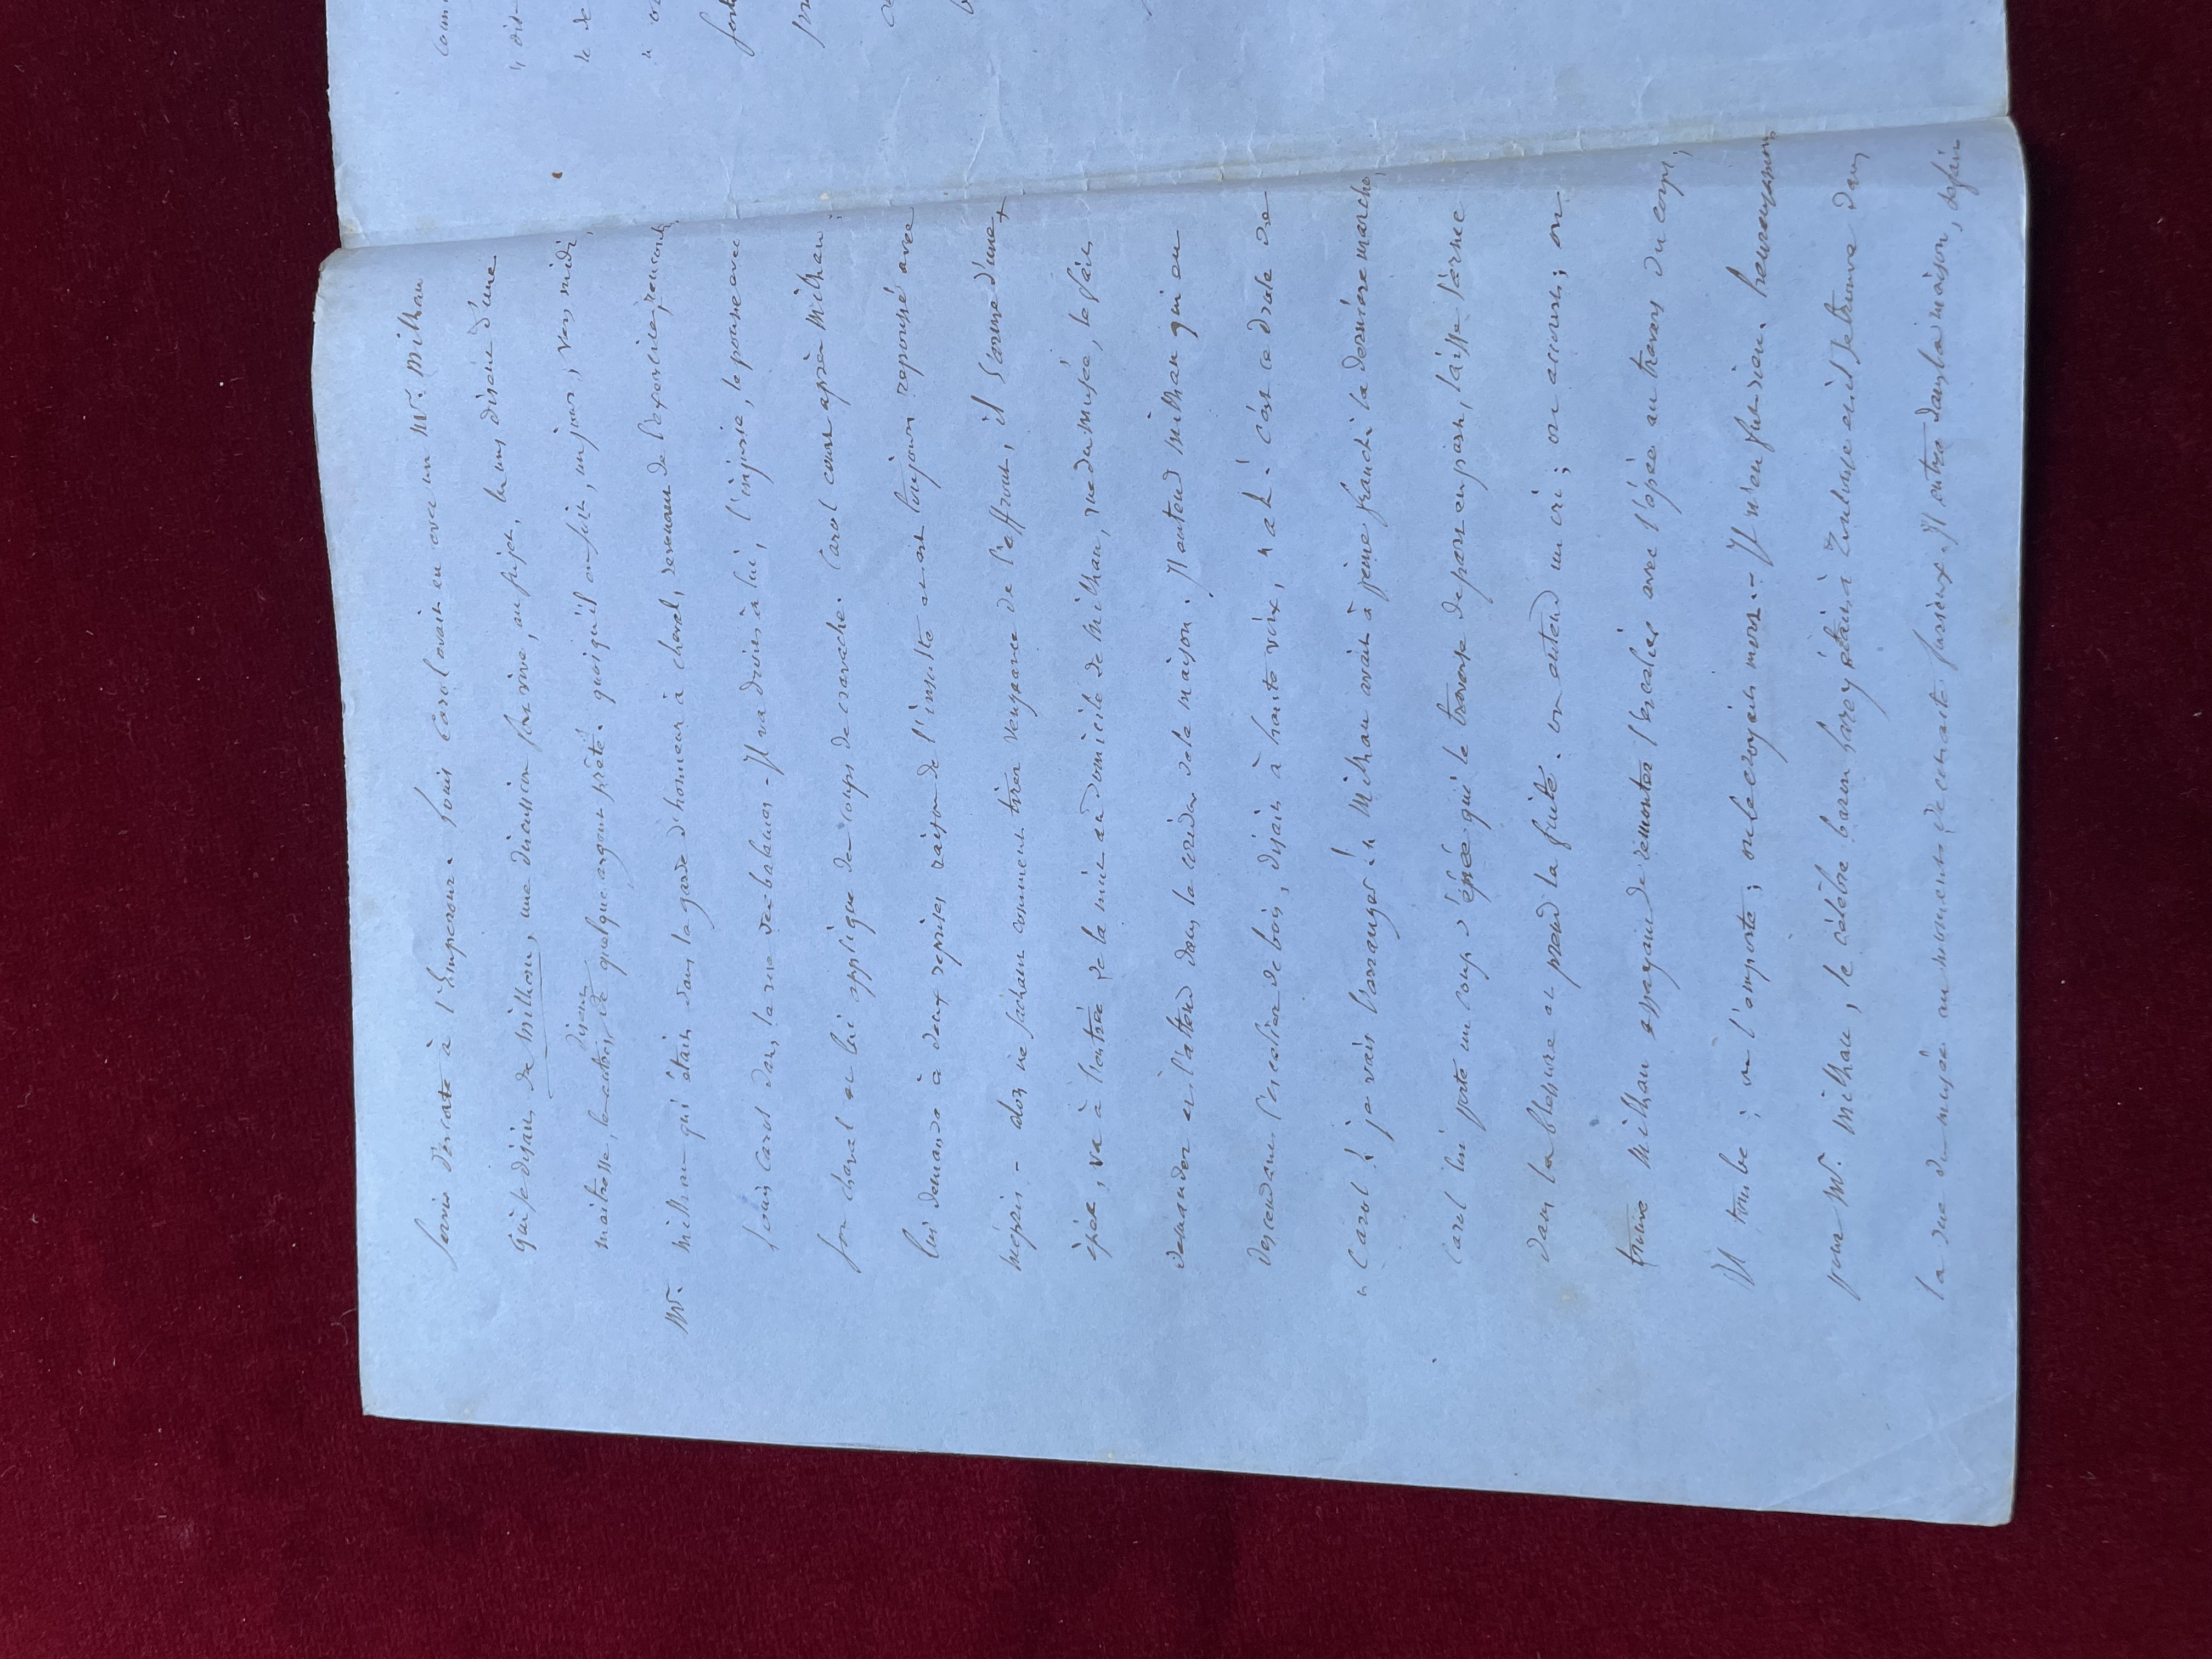 servir d'escorte à l'Empereur. Louis Carol avait eu avec un Mr. Milhau
qui se disait de Milhau, une discussion fort vive, au sujet, les uns disaient d'une
maitresse, les autres disaient de quelque argent prêté. quoiqu'il en soit, un jour, vers midi,
Mr. Milhau qui était dans la garde d'honneur à cheval, revenant de l'exercice, rencontre
Louis Carol dans la rue des balances - Il va droit à lui, l'injurie, le pousse avec
son cheval et lui applique des coups de cravache. Carol court après Milhau
lui demande à deux reprises raison de l'insulte et est toujours repoussé avec
mépris - alors ne sachant comment tirer vengeance de l'affront, il s'arme d'une
épée, va à l'entrée de la nuit au domicile de Milhau, rue du musée, le fait
demander et l'attend dans le corridor de la maison. Il entend Milhau qui en
descendant l'escalier de bois, disait à haute voix, " ah! c'est ce drole de
" Carol! je vais l'arranger! " Milhau avait à peine franchi la dernière marche,
Carol lui porte un coup d'épée qui le traverse de part en part, laisse l'arme
dans la blessure et prend la fuite. on entend un cri; on accourt; on
trouve Milhau essayant de remonter l'escalier avec l'épée au travers du corps;
Il tombe; on l'emporte; on le croyait mort. - Il n'en fut rien. heureusement
pour Mr. Milhau, le célèbre baron Larrey était à Toulouse et il se trouve dans
la rue du musée au moment de cette scène. Il entre dans la maison, defait